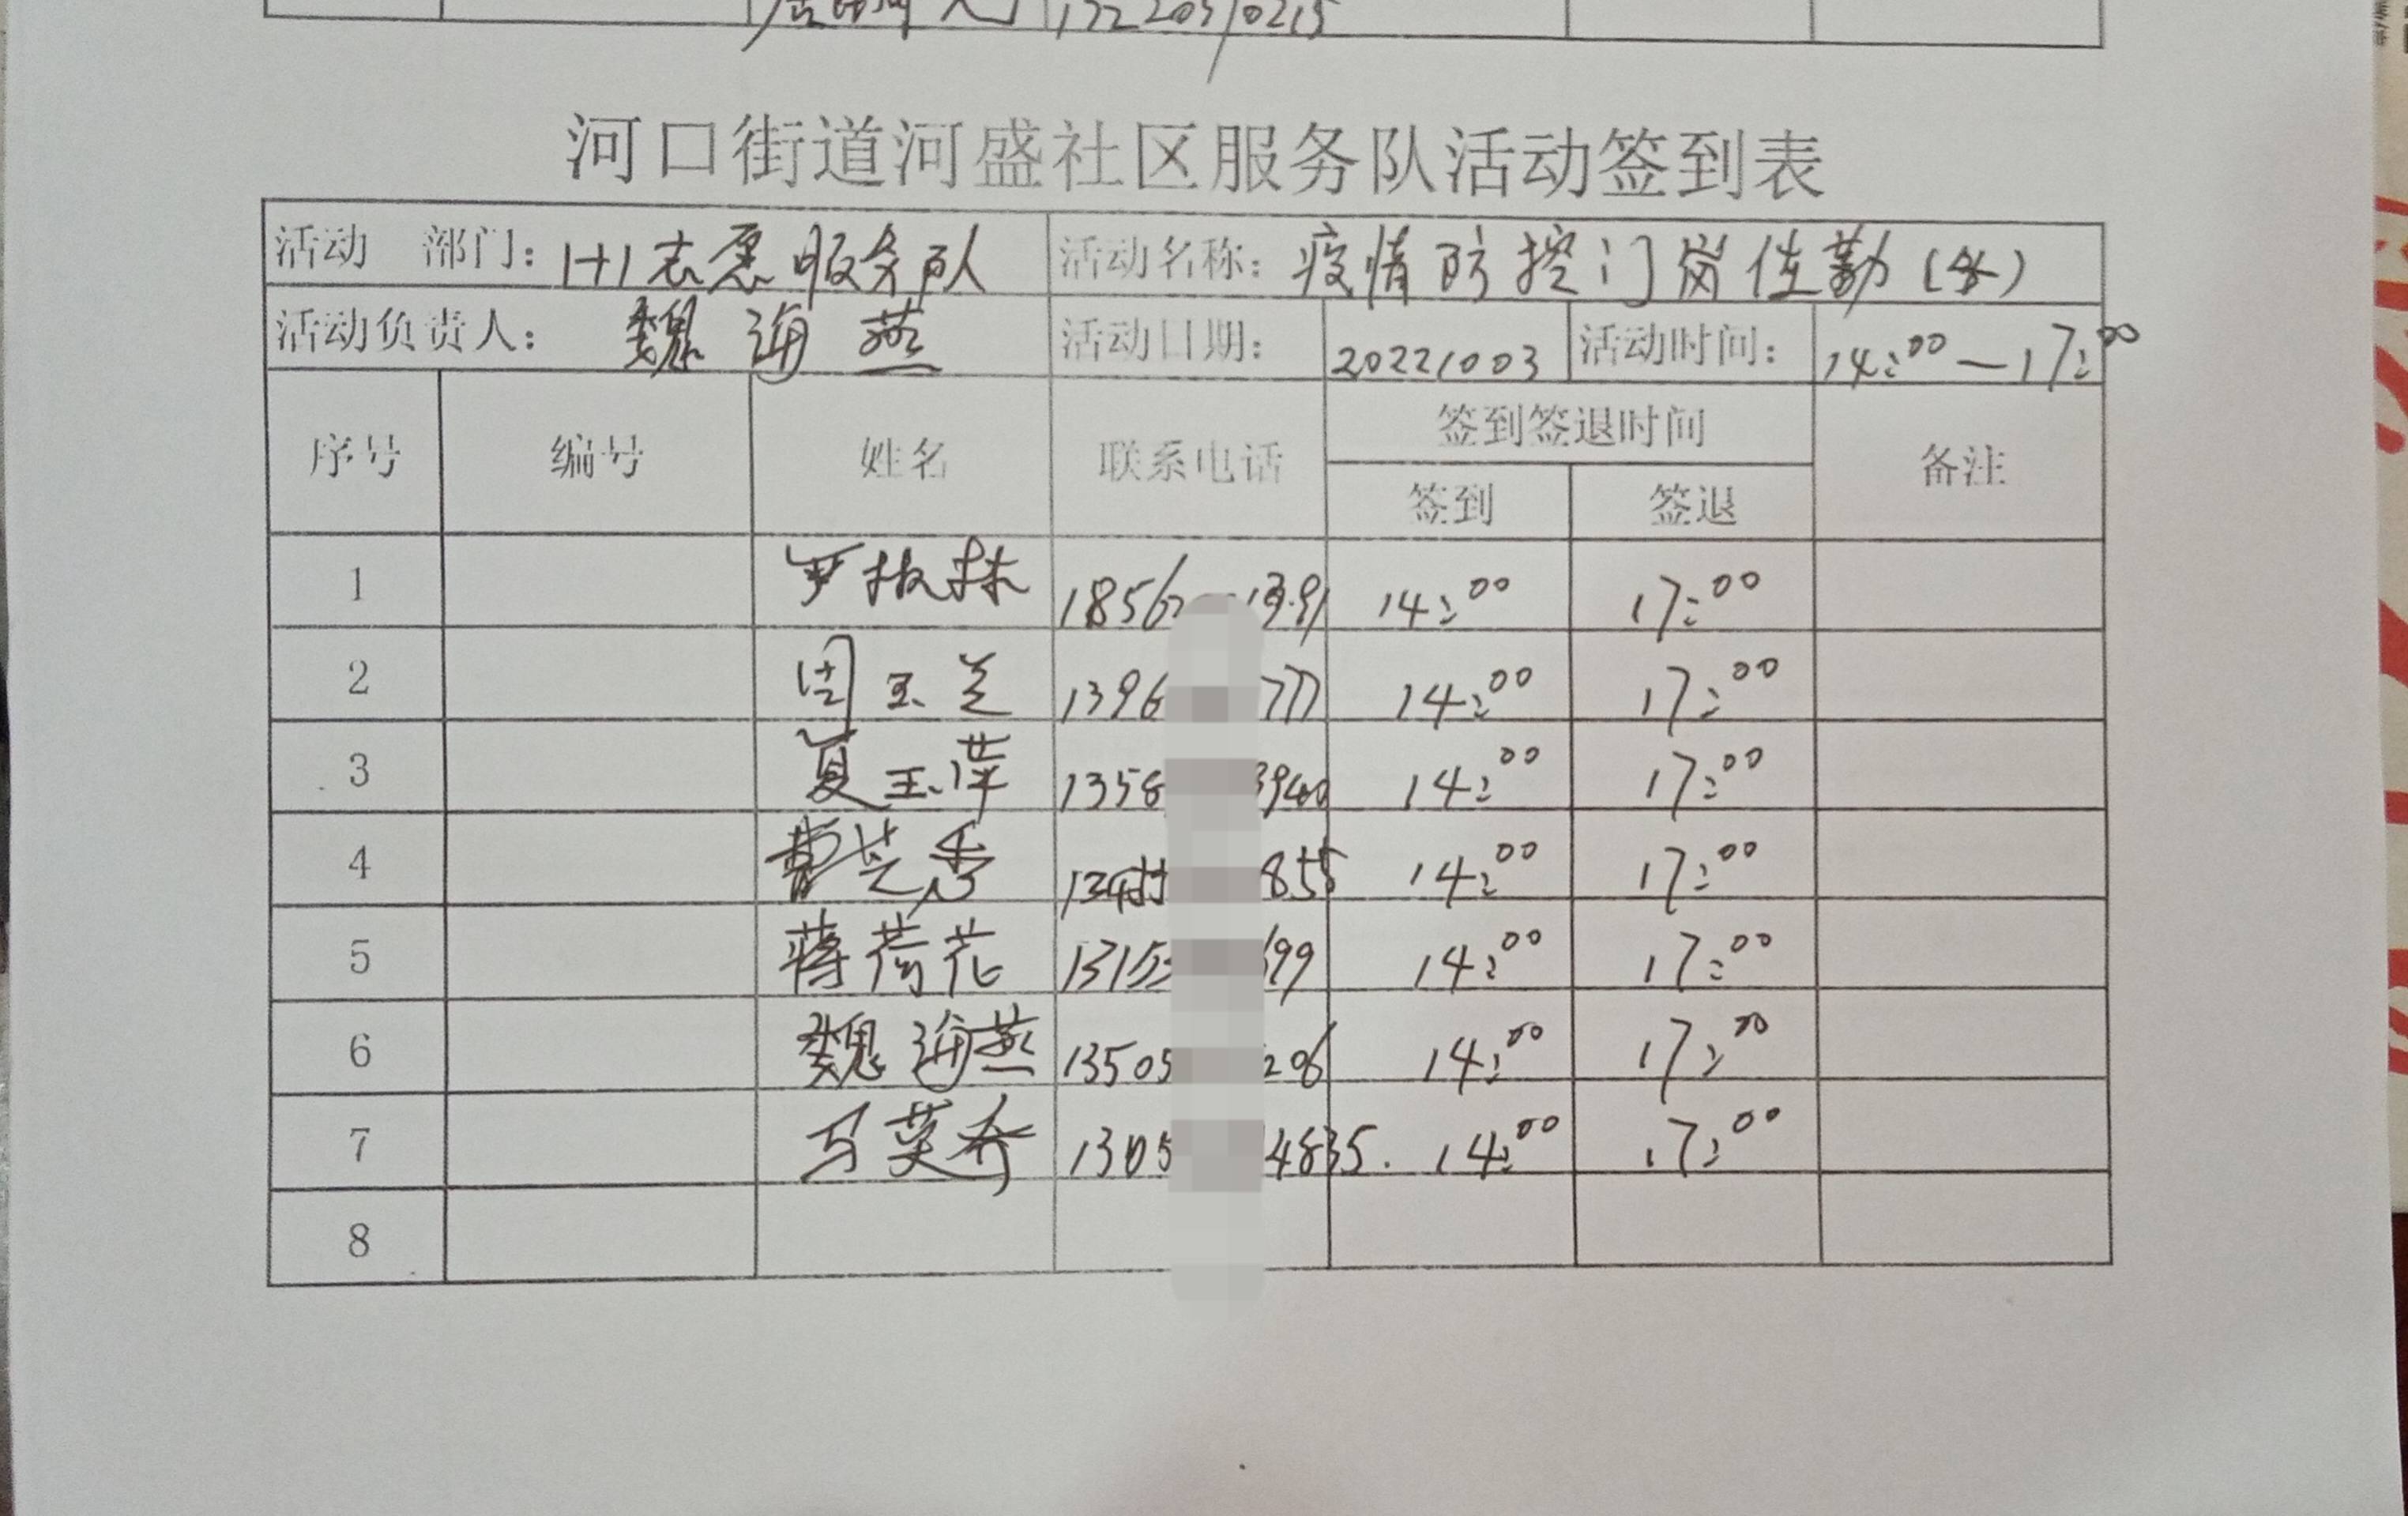 河口街道河盛社区服务队活动签到表
活动 部门: 1+1志愿服务队 活动名称: 疫情防控门岗值勤
活动负责人: 魏海燕 活动日期: 20221003 活动时间: 14:00—17:00
序号 编号 姓名 联系电话 签到签退时间 备注
签到 签退
1 14:00 17:00
2 周玉兰 1396 777 14:00 17:00
3 夏玉萍 1358 3940 14:00 17:00
4 曹芝香 855 14:00 17:00
5 蒋荷花 13153 699 14:00 17:00
6 魏海燕 13505 206 14:00 17:00
7 1305 4835. 14:00 17:00
8